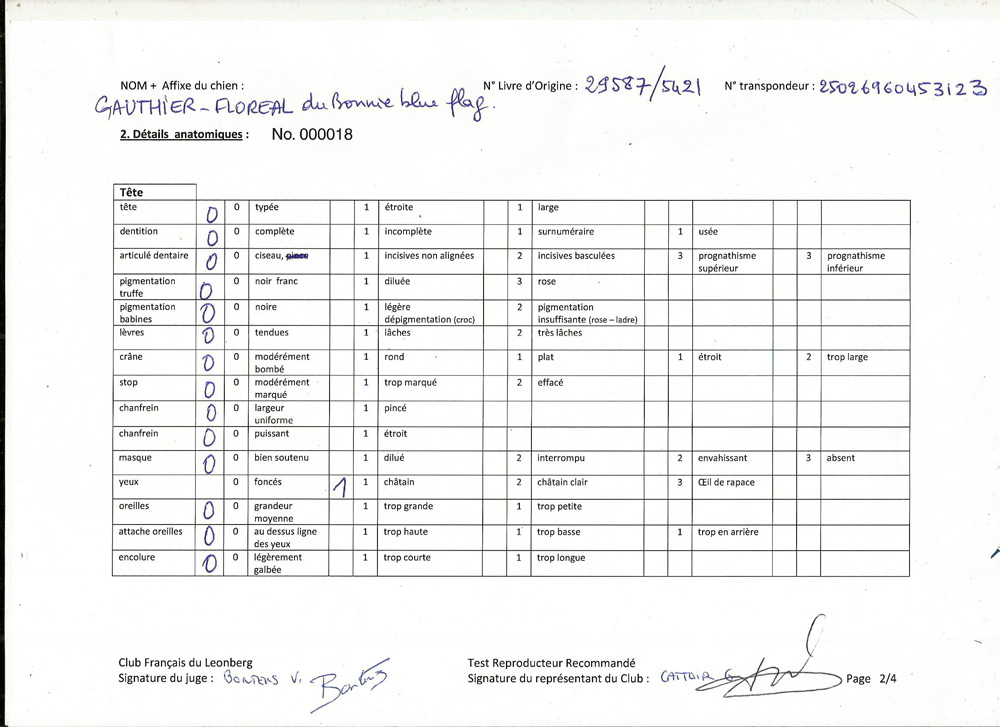 NOM + Affixe du chien : N° Livre d'Origine : 29587/5421 N° transpondeur : 25026960453123
GAUTHIER-FLOREAL du Bonnie blue flag.
2. Détails anatomiques : No. 000018
Tête
tête 0 0 typée 1 étroite 1 large
dentition 0 0 complète 1 incomplète 1 surnuméraire 1 usée
articulé dentaire 0 0 ciseau, pince 1 incisives non alignées 2 incisives basculées 3 prognathisme supérieur 3 prognathisme inférieur
pigmentation truffe 0 0 noir franc 1 diluée 3 rose
pigmentation babines 0 0 noire 1 légère dépigmentation (croc) 2 pigmentation insuffisante (rose – ladre)
lèvres 0 0 tendues 1 lâches 2 très lâches
crâne 0 0 modérément bombé 1 rond 1 plat 1 étroit 2 trop large
stop 0 0 modérément marqué 1 trop marqué 2 effacé
chanfrein 0 0 largeur uniforme 1 pincé
chanfrein 0 0 puissant 1 étroit
masque 0 0 bien soutenu 1 dilué 2 interrompu 2 envahissant 3 absent
yeux 0 foncés 1 1 châtain 2 châtain clair 3 Œil de rapace
oreilles 0 0 grandeur moyenne 1 trop grande 1 trop petite
attache oreilles 0 0 au dessus ligne des yeux 1 trop haute 1 trop basse 1 trop en arrière
encolure 0 0 légèrement galbée 1 trop courte 1 trop longue
Club Français du Leonberg Test Reproducteur Recommandé
Signature du juge : V. Signature du représentant du Club : Page 2/4